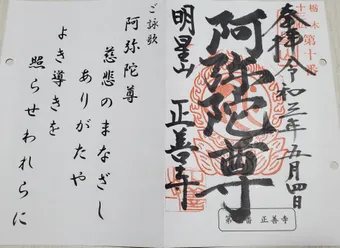 栃木
第十番
奉拝 令和三年五月四日
阿弥陀尊
明星山 正善寺
番 正善寺
ご詠歌
阿弥陀尊
慈悲のまなざし
ありがたや
よき導きを
照らせわれらに